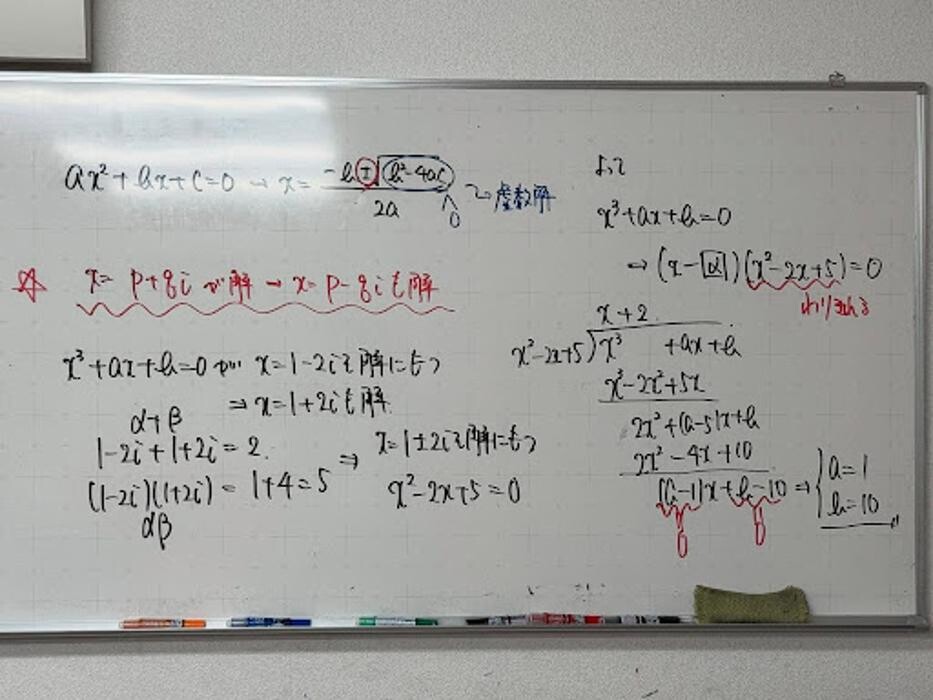 ax²+bx+c=0 → x= (-b±√(b²-4ac))/2a
0
〜虚数解
☆ x= p+qi が解 → x= p-qi も解
x³+ax+b=0 が x=1-2iを解にもつ
⇒ x=1+2iも解
α+β
1-2i+1+2i=2.
(1-2i)(1+2i)= 1+4=5
αβ
⇒ x=1±2iを解にもつ
x²-2x+5=0
よって
x³+ax+b=0
⇒ (x-α)(x²-2x+5)=0
わりきれる
x+2
x²-2x+5)x³ +ax+b
x³-2x²+5x
2x²+(a-5)x+b
2x²-4x+10
(a-1)x+b-10 ⇒ { a=1
b=10
0 0